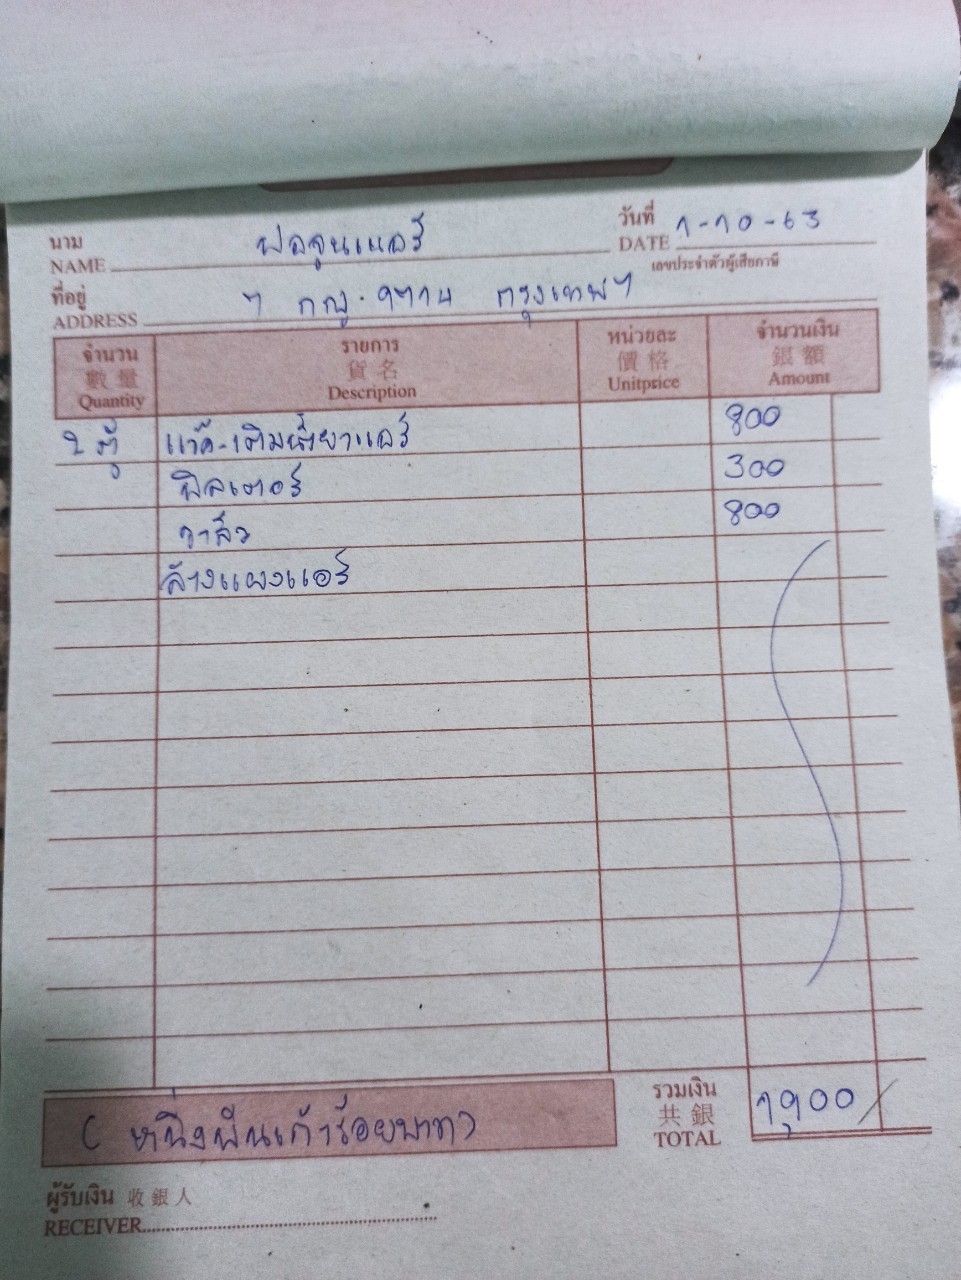 นาม
NAME ฟอจูนแอร์
วันที่
DATE 1-10-63
เลขประจำตัวผู้เสียภาษี
ที่อยู่
ADDRESS 7 กรุงเทพฯ
จำนวน
數量
Quantity
รายการ
貨名
Description
หน่วยละ
價格
Unitprice
จำนวนเงิน
銀額
Amount
2 ตู้ แว๊ค-เติมน้ำยาแอร์ 800
ฟิลเตอร์ 300
วาล์ว 800
ล้างแผงแอร์
(หนึ่งพันเก้าร้อยบาท)
รวมเงิน
共銀
TOTAL
1900/
ผู้รับเงิน 收銀人
RECEIVER